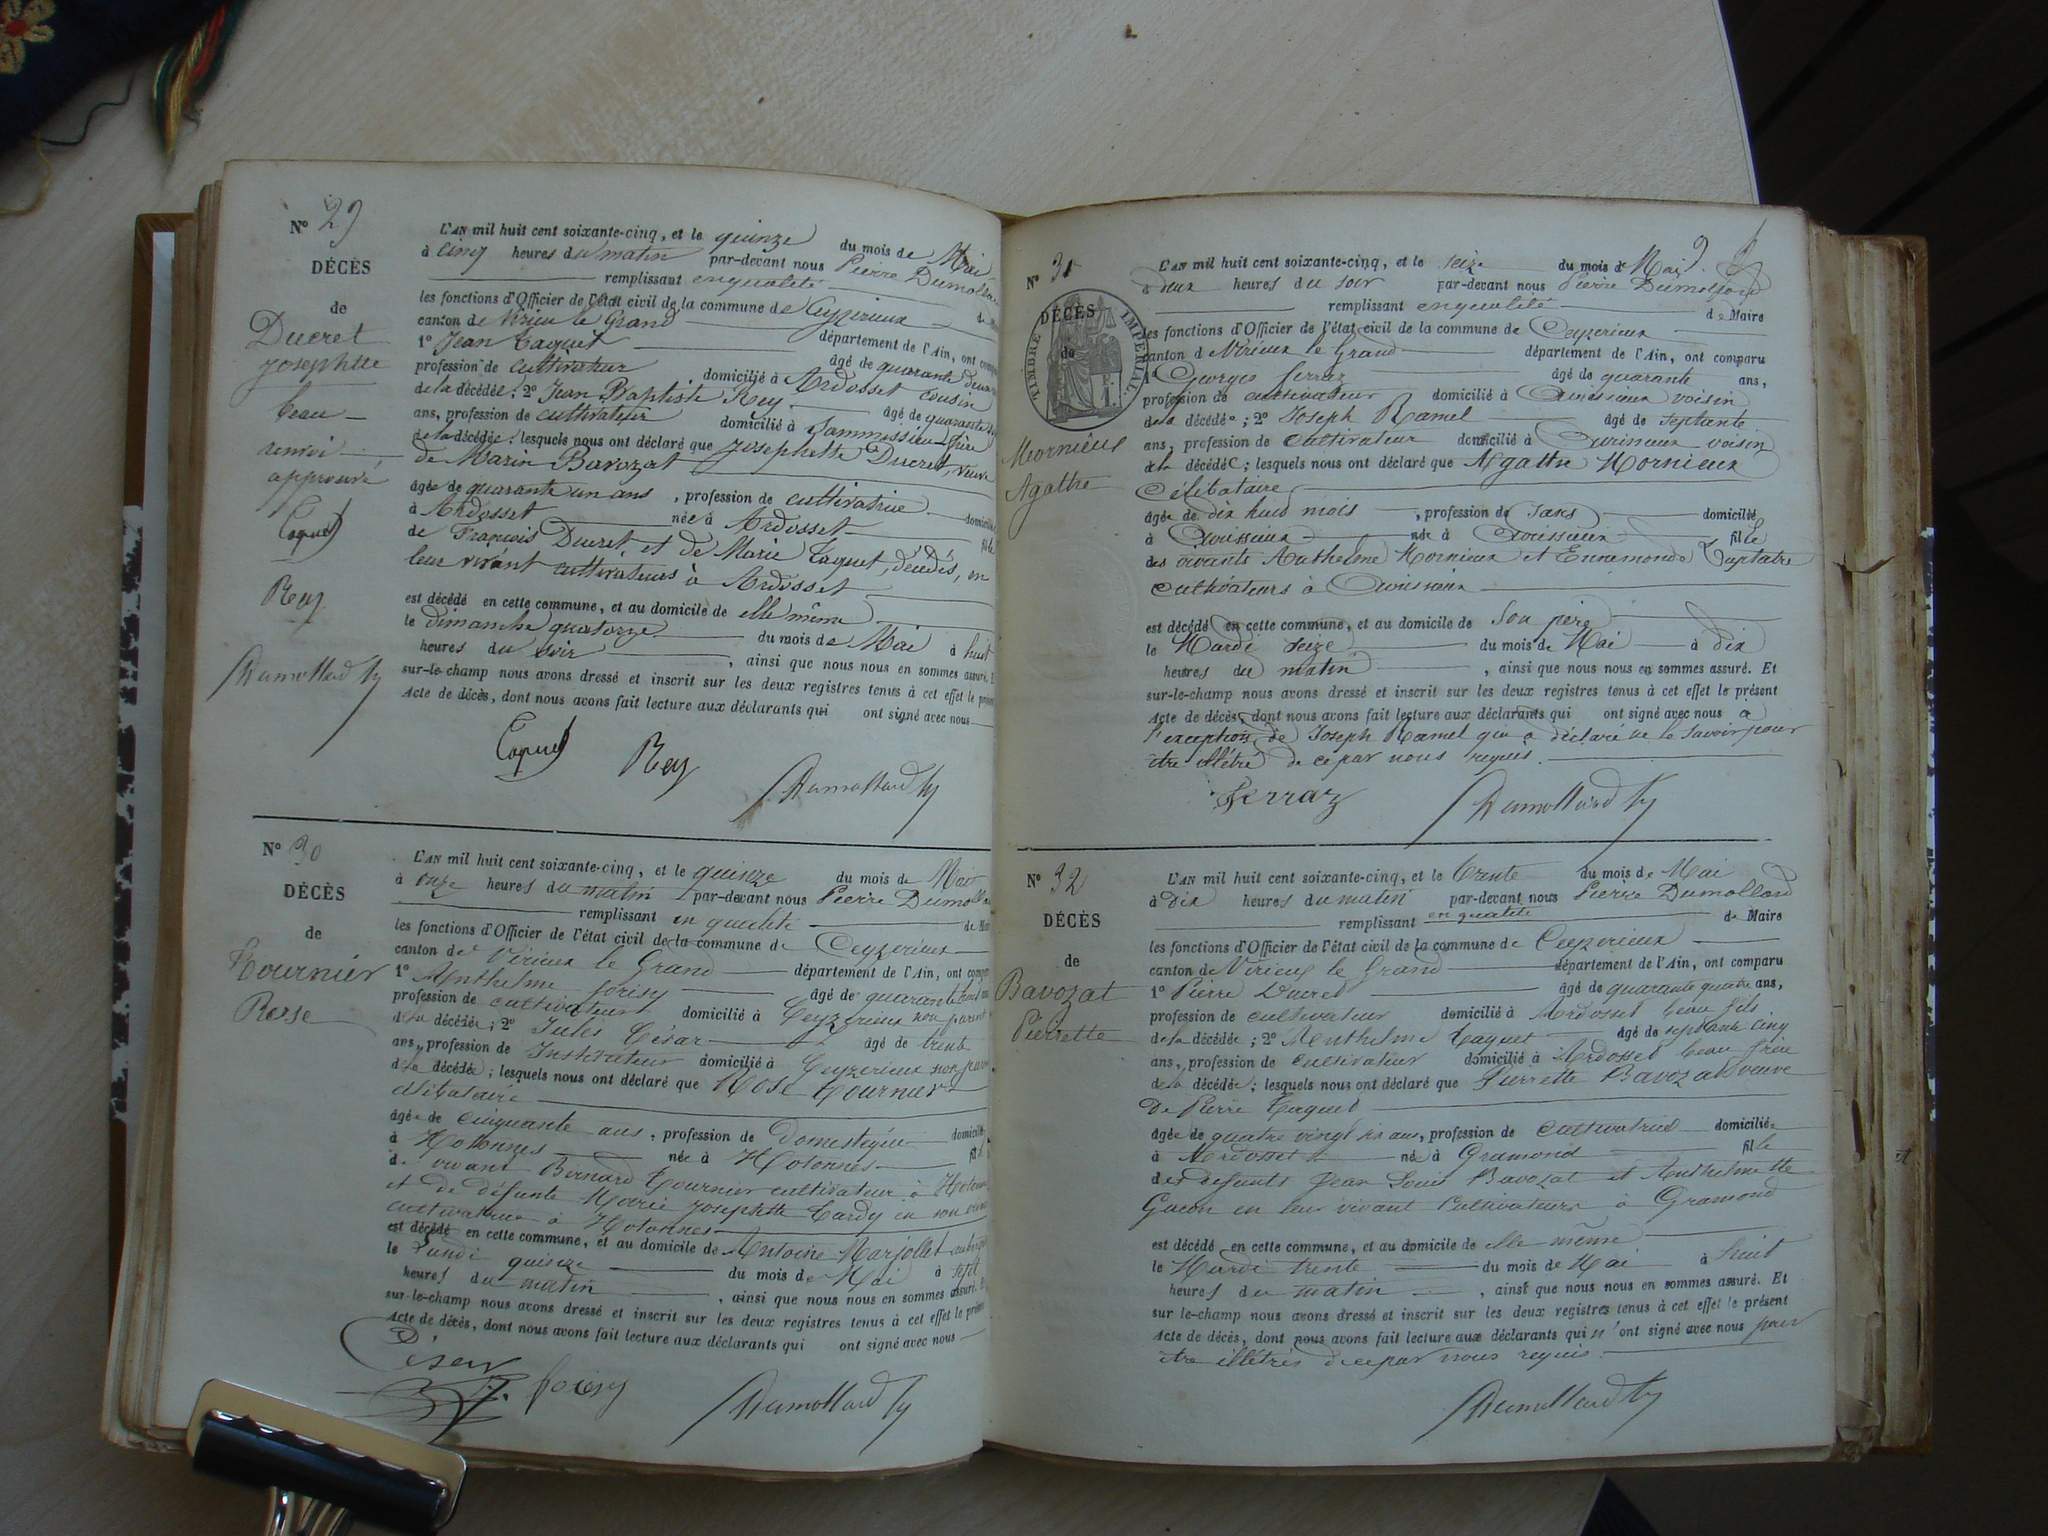 N° 29
DÉCÈS
de
Ducret
Josephtte
beau
renvoi
approuvé
Taquet
Rey
Dumollard
L'AN mil huit cent soixante-cinq, et le quinze du mois de Mai
à cinq heures du matin par-devant nous Pierre Dumollard
remplissant en qualité de
les fonctions d'Officier de l'état civil de la commune de Ceyzerieux
canton de Virieu le Grand département de l'Ain, ont
1° Jean Taquet âgé de quarante deux
profession de cultivateur domicilié à Ardosset cousin
de la décédée: 2° Jean Baptiste Rey âgé de quarante
ans, profession de cultivateur domicilié à frère
de la décédée; lesquels nous ont déclaré que Josephette Ducret, veuve
de Marin Bavozat
âgée de quarante un ans, profession de cultivatrice domicilié
à Ardosset née à Ardosset fille
de François Ducret et de Marie Taquet, décédés, en
leur vivant cultivateurs à Ardosset
est décédé en cette commune, et au domicile de elle même
le dimanche quatorze du mois de Mai à huit
heures du soir, ainsi que nous nous en sommes assuré. E
sur-le-champ nous avons dressé et inscrit sur les deux registres tenus à cet effet le présen
Acte de décès, dont nous avons fait lecture aux déclarants qui ont signé avec nous
Taquet Rey Dumollard
N° 30
DÉCÈS
de
Tournier
Rose
L'AN mil huit cent soixante-cinq, et le quinze du mois de Mai
à onze heures du matin par-devant nous Pierre Dumolla
remplissant en qualité de Mai
les fonctions d'Officier de l'état civil de la commune de Ceyzerieux
canton de Virieux le Grand département de l'Ain, ont comp
1° Anthelme Forisy âgé de quarante
profession de cultivateur domicilié à Ceyzerieux non parent
de la décédée; 2° Jules César âgé de trente
ans, profession de Instituteur domicilié à Ceyzerieux non
de la décédée; lesquels nous ont déclaré que Rose Tournier
célibataire
âgée de cinquante ans, profession de Domestique domicilié
à Hotonnes née à Hotonnes fil
de vivant Bernard Tournier cultivateur à Hotonn
et de défunte Marie Josephtte Tardy en son
cultivatrice à Hotonnes
est décédé en cette commune, et au domicile de Antoine Marjollet
le Lundi quinze du mois de Mai à sept
heures du matin, ainsi que nous nous en sommes assuré.
sur-le-champ nous avons dressé et inscrit sur les deux registres tenus à cet effet le prése
Acte de décès, dont nous avons fait lecture aux déclarants qui ont signé avec nous
César Dumollard
N° 31
DÉCÈS
de
TIMBRE IMPÉRIAL
Mornieux
Agathe
L'AN mil huit cent soixante-cinq, et le seize du mois de Mai
à deux heures du soir par-devant nous Pierre Dumollard
remplissant en qualité de Maire
les fonctions d'Officier de l'état civil de la commune de Ceyzerieux
canton d Virieux le Grand département de l'Ain, ont comparu
1° Georges Ferraz âgé de quarante ans,
profession de cultivateur domicilié à Avoissieux voisin
de la décédée; 2° Joseph Ramel âgé de septante
ans, profession de cultivateur domicilié à Avoissieux voisin
de la décédée; lesquels nous ont déclaré que Agathe Mornieux
Célibataire
âgée de dix huit mois, profession de sans domicilié
à Avoissieux née à Avoissieux fille
des vivants Anthelme Mornieux et Ennemonde
cultivateurs à Avoissieux
est décédé en cette commune, et au domicile de Son père
le Mardi seize du mois de Mai à dix
heures du matin, ainsi que nous nous en sommes assuré. Et
sur-le-champ nous avons dressé et inscrit sur les deux registres tenus à cet effet le présent
Acte de décès, dont nous avons fait lecture aux déclarants qui ont signé avec nous à
l'exception de Joseph Ramel qui a déclaré ne le savoir pour
être illétré de ce par nous requis.
Ferraz Dumollard
N° 32
DÉCÈS
de
Bavozat
Pierrette
L'AN mil huit cent soixante-cinq, et le trente du mois de Mai
à Dix heures du matin par-devant nous Pierre Dumollard
remplissant en qualité de Maire
les fonctions d'Officier de l'état civil de la commune de Ceyzerieux
canton de Virieux le Grand département de l'Ain, ont comparu
1° Pierre Ducret âgé de quarante quatre ans,
profession de cultivateur domicilié à Ardosset beau fils
de la décédée; 2° Anthelme Taquet âgé de septante cinq
ans, profession de cultivateur domicilié à Ardosset beau frère
de la décédée; lesquels nous ont déclaré que Pierrette Bavozat veuve
De Pierre Taquet
âgée de quatre vingt six ans, profession de cultivatrice domiciliée
à Ardosset née à Gramond fille
des défunts Jean Louis Bavozat et Anthelmette
Guson en leur vivant Cultivateurs à Gramond
est décédé en cette commune, et au domicile de elle même
le Mardi trente du mois de Mai à huit
heures du matin, ainsi que nous nous en sommes assuré. Et
sur le-champ nous avons dressé et inscrit sur les deux registres tenus à cet effet le présent
Acte de décès, dont nous avons fait lecture aux déclarants qui n'ont signé avec nous pour
être illétrés de ce par nous requis.
Dumollard